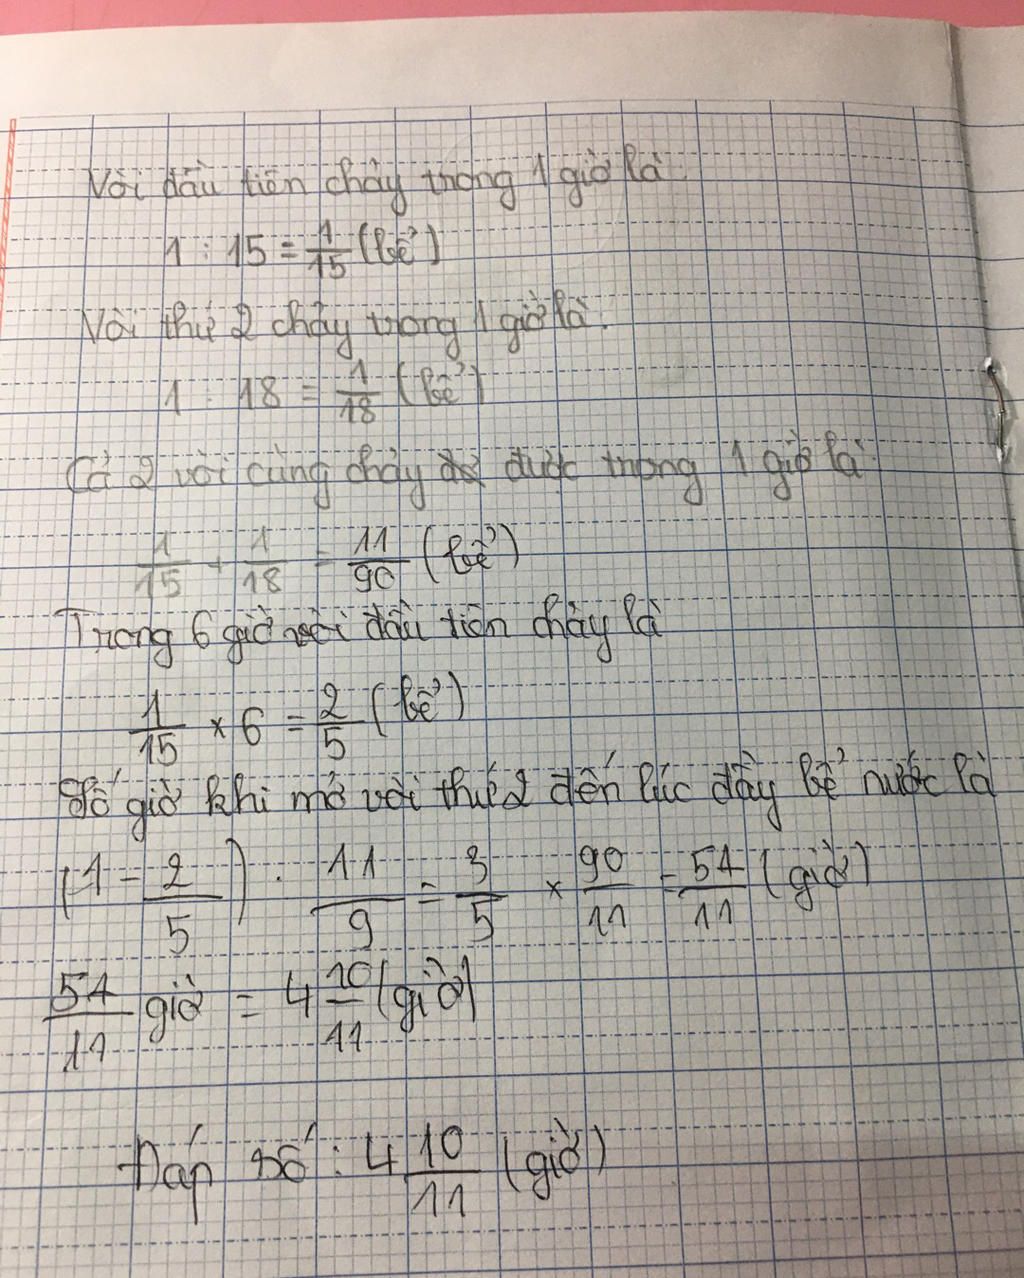 Vòi đầu tiên chảy trong 1 giờ là:
1 : 15 = 1/15 (bể)
Vòi thứ 2 chảy trong 1 giờ là:
1 : 18 = 1/18 (bể)
Cả 2 vòi cùng chảy được trong 1 giờ là:
1/15 + 1/18 = 11/90 (bể)
Trong 6 giờ vòi đầu tiên chảy là
1/15 × 6 = 2/5 (bể)
Số giờ khi mở vòi thứ 2 đến lúc đầy bể nước là
(1 - 2/5) : 11/9 = 3/5 × 90/11 = 54/11 (giờ)
54/11 giờ = 4 10/11 (giờ)
Đáp số : 4 10/11 (giờ)